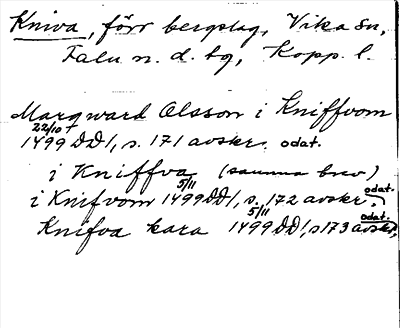 Kniva, förr bergslag, Vika sn,
Falu n. d. bg, Kopp. l.
Marqward Olsson i Kniffvom
22/10 1499 DD 1, s. 171 avskr. odat.
i Kniffva (samma brev)
i Knifvom 5/11 1499 DD 1, s. 172 avskr. odat.
Knifva kara 5/11 1499 DD 1, s 173 avskr. odat.